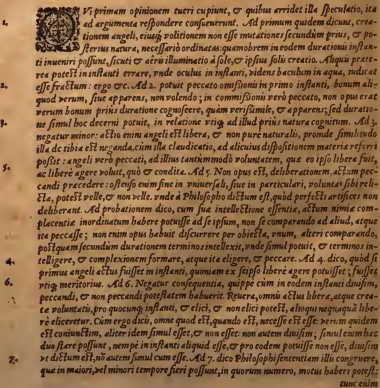 QVi primam opinionem tueri cupiunt, & quibus arridet illa speculatio, ita
ad argumenta respondere consueuerunt. Ad primum quidem dicunt, crea-
tionem angeli, eiusq; volitionem non esse mutationes secundùm prius, & po-
sterius natura, necessariò ordinatas: quamobrem in eodem durationis instan-
ti inueniri possunt, sicuti & aëris illuminatio à sole, & ipsius solis creatio. Aliquis præte-
rea potest in instanti errare, vnde oculus in instanti, videns baculum in aqua, iudicat
2. esse fractum: ergo &c. Ad 2. potuit peccato omissionis in primo instanti, bonum ali-
quod verum, siue apparens, non volendo; in commissionis verò peccato, non opus erat
verum bonum prius duratione cognoscere, quàm verisimile, & apparens; sed duratio-
3. ne simul hoc decerni potuit, in relatione tñ q; ad illud priùs natura cognitum. Ad 3.
negatur minor: actio enim angeli est libera, & non purè naturalis, pronde similitudo
illa de tibia est neganda, cùm illa claudicatio, ad alicuius dispositionem materiæ referri
5. possit: angeli verò peccati, ad illius tantùmmodò voluntatem, quæ eo ipso libera fuit,
ac liberè agere voluit, quò & condita. Ad 5. Non opus est, deliberationem, actum pec-
candi præcedere: ostenso enim fine in vniuersali, siue in particulari, voluntas sibi reli-
cta, potest velle, & non velle. vnde à Philosopho dictum est, quòd perfecti artifices non
deliberant. Ad probationem dico, cum sua intellectione essentiæ, actum nimiæ com-
placentiæ inordinatum habere potuisse de se ipsum, non se comparando ad aliud, atque
ita peccasse; non enim opus habuit discurrere per obiecta, vnum, alteri comparando,
postquam secundùm durationem terminos intellexit, vnde simul potuit, & terminos in-
4. telligere, & complexionem formare, atque ita eligere, & peccare. Ad 4. dico, quòd si
primus angeli actus fuisset in instanti, quoniam ex seipso liberè agere potuisset; fuisset
6. vtiq; meritorius. Ad 6. Negatur consequentia, quippe cùm in eodem instanti diuisim,
peccandi, & non peccandi potestatem habuerit. Reuera, omnis actus libera, atque crea-
ta voluntatis, pro quocunq; instanti, & elici, & non elici potest, alioqui nequaquā libe-
rè eliceretur. Cum ergo dicis, omne quod est, quando est, necesse est esse: verùm quidem
est coniunctim, aliter idem simul esset, & non esset: non autem diuisim; simul enim hæc
duo stare possunt, nempè in instanti aliquid esse, & pro eodem potuisse non esse, diuisim,
7. vt dictum est, nō autem simul cum esse. Ad 7. dico Philosophi sententiam illi congruere,
que in maiori, vel minori tempore fieri possunt, in quorum numero, motus haberi potest:
tunc enim